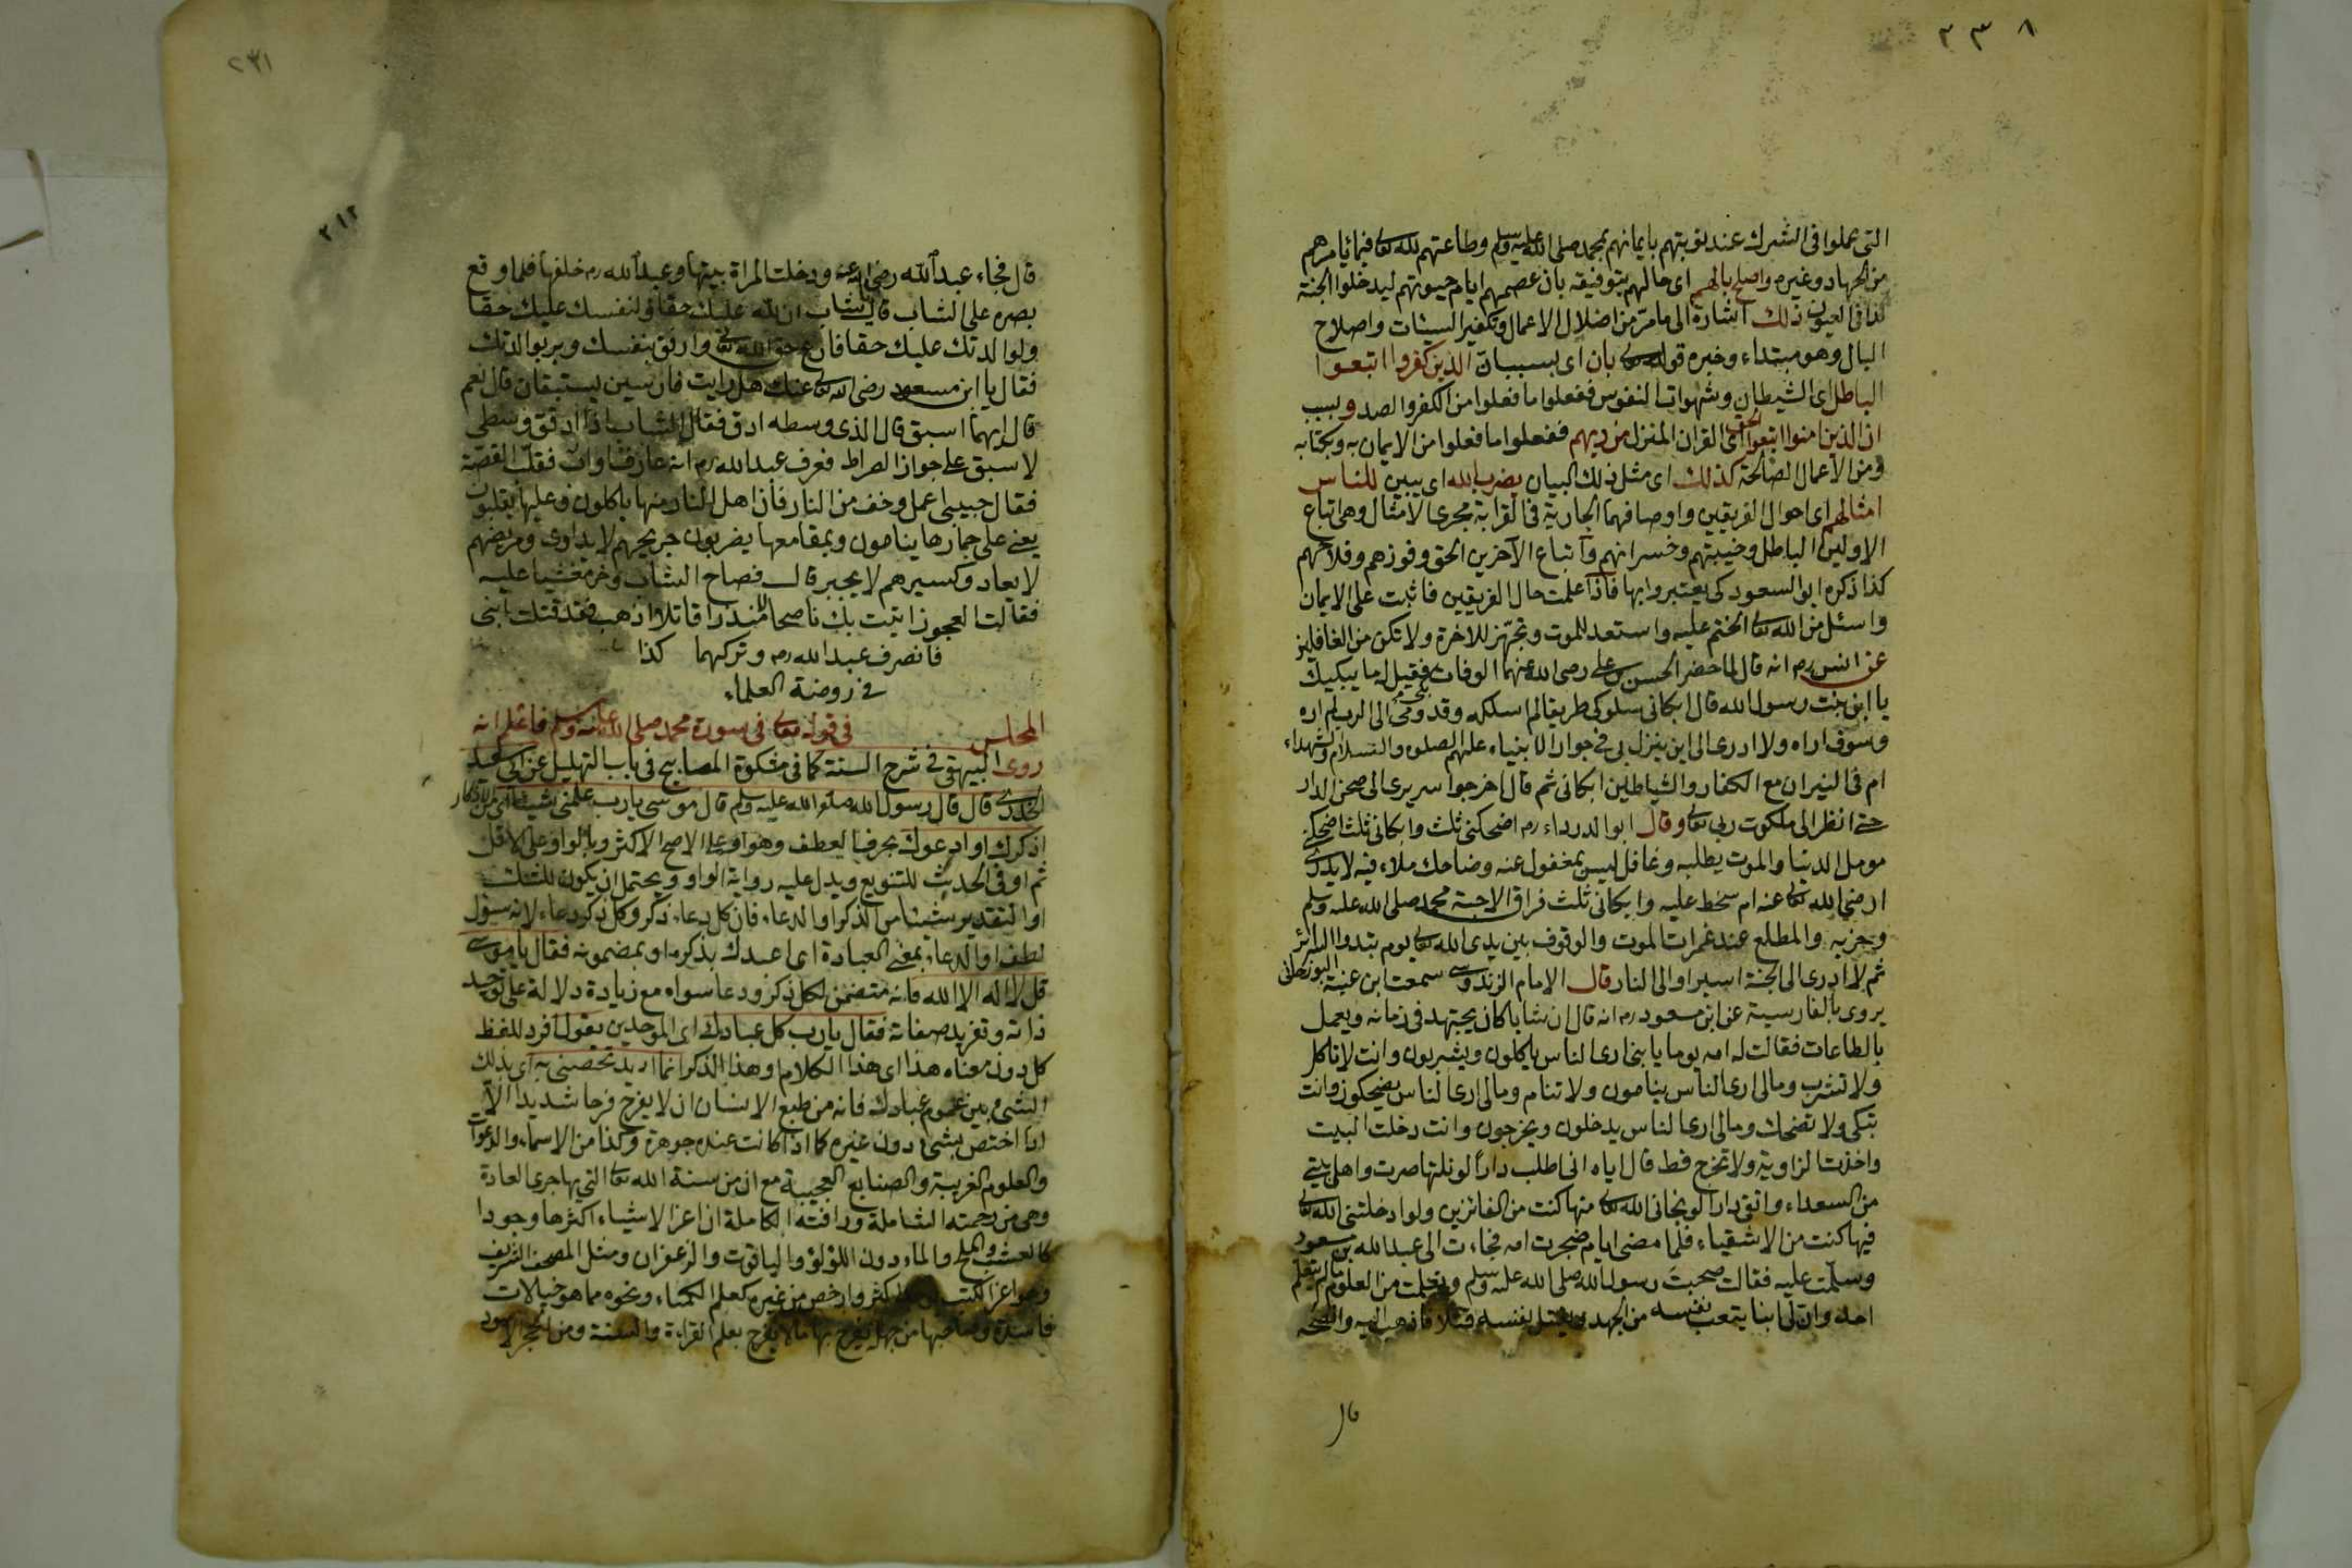 ٢٣٨
التى عملوا فى الشرك عند توبتهم بايمانهم بمحمد صلى الله عليه وسلم وطاعتهم لله تعالى فيما يأمرهم
من الجهاد وغيره واصلح بالهم اى حالهم بتوفيقه بان عصمهم ايام حيوتهم ليدخلوا الجنة
كذا فى العيون ذلك اشارة الى ما مر من اضلال الاعمال وتكفير السيئات واصلاح
البال وهو مبتداء وخبره قوله تعالى بان اى بسبب ان الذين كفروا اتبعوا
الباطل اى الشيطان وشهوات النفوس ففعلوا ما فعلوا من الكفر والصد وبسبب
ان الذين امنوا اتبعوا الحق اى القران المنزل من ربهم ففعلوا ما فعلوا من الايمان به وبكتابه
ومن الاعمال الصالحة كذلك اى مثل ذلك البيان يضرب الله اى يبين للناس
امثالهم اى احوال الفريقين واوصافهما الجارية فى القرابة مجرى الامثال وهى اتباع
الاولين الباطل وخيبتهم وخسرانهم واتباع الآخرين الحق وفوزهم وفلاحهم
كذا ذكره ابو السعود كى يعتبروا بها فاذا علمت حال الفريقين فاثبت على الايمان
واسئل من الله تعالى الختم عليه واستعد للموت وتجهز للاخرة ولا تكن من الغافلين
عن انس رم انه قال لما حضر الحسن بن على رضى الله عنهما الوفات فقيل له ما يبكيك
يا ابن بنت رسول الله قال ابكانى سلوكى طريقا لم اسلكه وقدومى الى الرب لم اره
وسوف اراه ولا ادرى الى اين ينزل بى فى جوار الانبياء عليهم الصلوه والسلام والشهداء
ام فى النيران مع الكفار والشياطين ابكانى ثم قال اخرجوا سريرى الى صحن الدار
حتى انظر الى ملكوت ربى تعالى وقال ابو الدرداء رم اضحكنى ثلث وابكانى ثلث اضحكنى
مومل الدنيا والموت يطلبه وغافل ليس بمغفول عنه وضاحك ملاء فيه لا يدرى
ارضى الله تعالى عنه ام سخط عليه وابكانى ثلث فراق الاحبة محمد صلى الله عليه وسلم
وحزبه والمطلع عند غمرات الموت والوقوف بين يدى الله تعالى يوم تبدوا السرائر
ثم لا ادرى الى الجنة اسير او الى النار قال الامام الزندوسى سمعت ابن عنبة
يروى بالفارسية عن ابن مسعود رم انه قال ان شابا كان يجتهد فى زمانه ويعمل
بالطاعات فقالت له امه يوما يا بنى ارى الناس ياكلون ويشربون وانت لا تاكل
ولا تشرب ومالى ارى الناس ينامون ولا تنام ومالى ارى الناس يضحكون وانت
تبكى ولا تضحك ومالى ارى الناس يدخلون ويخرجون وانت دخلت البيت
واخذت الزاوية ولا تخرج قط قال اياه انى اطلب دارا لو نلتها صرت واهل بيتى
من السعداء واتقى دارا لو نجانى الله تعالى منها كنت من الفائزين ولو ادخلتنى الله تعالى
فيها كنت من الاشقياء فلما مضى ايام ضجرت امه فجاءت الى عبد الله بن مسعود
وسلمت عليه فقالت صحبت رسول الله صلى الله عليه وسلم من العلوم ما لم يتعلم
احد وان لى ابنا يتعب نفسه من الجهد نفسه فاذهب اليه وانصحه
قال
٢٣١
٢١٢
قال فجاء عبد الله رضى الله عنه ودخلت المراة بيتها وعبد الله رم خلفها فلما وقع
بصره على الشاب قال يا شاب ان لله عليك حقا ولنفسك عليك حقا
ولوالدتك عليك حقا فارع حق الله تعالى وارفق بنفسك وبر بوالدتك
فقال يا ابن مسعود رضى الله تعالى عنك هل رايت فارسين يستبقان قال نعم
قال ايهما اسبق قال الذى وسطه ادق فقال الشاب اذا ادقق وسطى
لاسبق على جواز الصراط فعرف عبد الله رم انه عارف فقلب القصة
فقال حبيبى اعمل وخف من النار فان اهل النار منها ياكلون وعليها يتقلبون
يعنى على جمارها ينامون وبمقامعها يضربون جريحهم لا يداوى ومريضهم
لا يعاد وكسيرهم لا يجبر قال فصاح الشاب وخر مغشيا عليه
فقالت العجوز اتيت بك ناصحا لا منذرا قاتلا اذهب فقد قتلت ابنى
فانصرف عبد الله رم وتركهما كذا
فى روضة العلماء
المجلس فى قوله تعالى فى سورة محمد صلى الله عليه وسلم فاعلم انه
روى البيهقى فى شرح السنة كما فى مشكوة المصابيح فى باب التهليل عن ابى سعيد
الخدرى قال قال رسول الله صلى الله عليه وسلم قال موسى يا رب علمنى شيئا
اذكرك او ادعوك بحرف العطف وهو او على الاصح الاكثر وبالواو على الاقل
ثم او فى الحديث للتنويع ويدل عليه رواية الواو ويحتمل ان يكون للشك
او التقدير شيئا من الذكر او الدعاء فان كل دعاء ذكر وكل ذكر دعاء لانه سؤال
لطف او الدعاء بمعنى العبادة اى اعبدك بذكره او بمضمونه فقال يا موسى
قل لا اله الا الله فانه متضمن لكل ذكر ودعا سواه مع زيادة دلالة على توحيد
ذاته وتفريد صفاته فقال يا رب كل عبادك اى الموحدين يقول افرد للفظ
كل دون معناه هذا اى هذا الكلام وهذا الذكر انما اريد تخصنى به اى بذلك
الشئ من بين عموم عبادك فانه من طبع الانسان ان لا يفرح فرحا شديدا الا
اذا اختص بشئ دون غيره كما اذا كانت عنده جوهرة وكذا من الاسماء والدعوات
والعلوم الغريبة والصنايع العجيبة مع ان من سنة الله تعالى التى بها جرى العادة
وهى من رحمته الشاملة ورافته الكاملة ان اعز الاشياء اكثرها وجودا
كالعشب والملح والماء دون اللؤلؤ والياقوت والزعفران ومثل المصحف الشريف
وهو اعز الكتب اكثر وارخص من غيره كعلم الكمياء ونحوه مما هو خيالات
فاسدة وصاحبها من جهله يفرح بها ما لا يفرح بعلم القراءة والسنة ومن الحجر الاسود